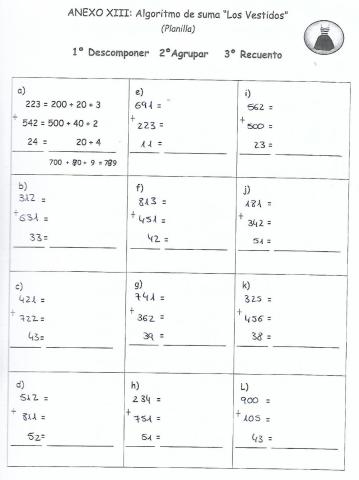 ANEXO XIII: Algoritmo de suma "Los Vestidos"
(Planilla)
1º Descomponer 2ºAgrupar 3º Recuento
a)
223 = 200 + 20 + 3
+
542 = 500 + 40 + 2
24 = 20 + 4
700 + 80 + 9 = 789
e)
691 =
+
223 =
11 =
i)
562 =
+
500 =
23 =
b)
312 =
+
631 =
33 =
f)
813 =
+
451 =
42 =
j)
181 =
+
342 =
51 =
c)
421 =
+
722 =
43=
g)
741 =
+
362 =
39 =
k)
325 =
+
456 =
38 =
d)
512 =
+
811 =
52=
h)
234 =
+
751 =
51 =
L)
900 =
+
105 =
43 =